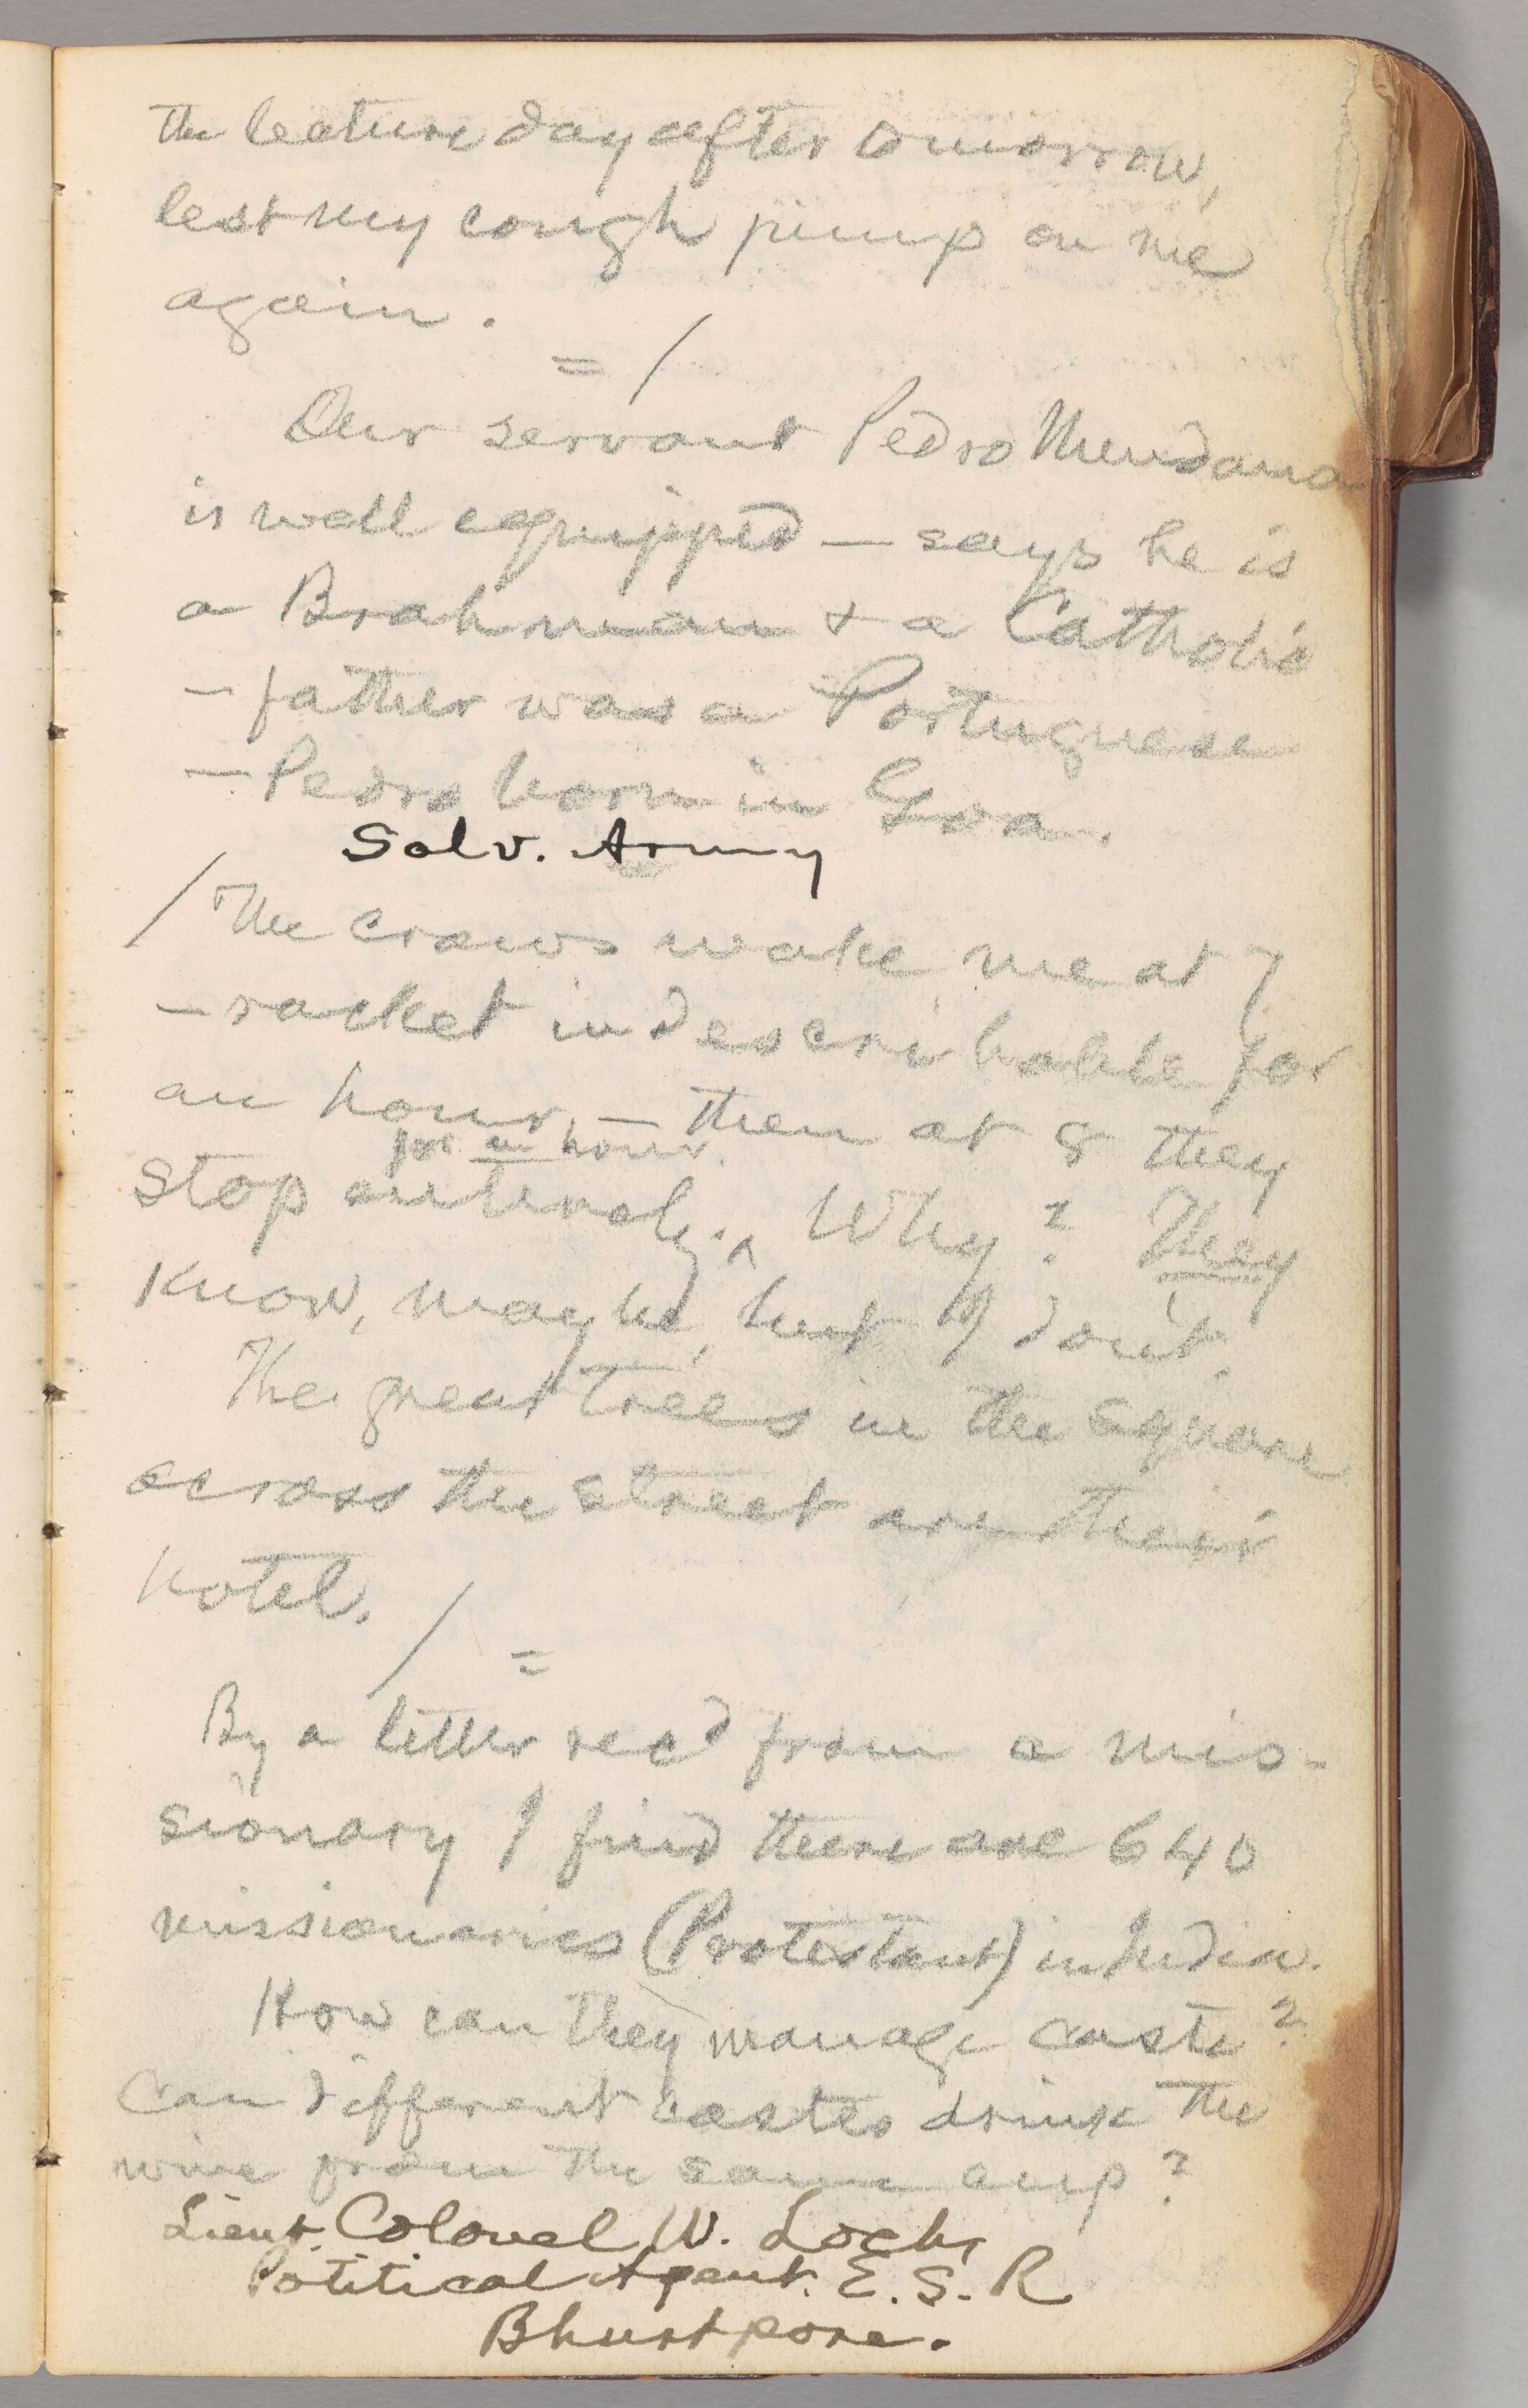 the lecture day after tomorrow,
lest my cough jump on me
again.
= /
Our servant Pedro Mendana
is well equipped — says he is
a Brahman & a Catholic
— father was a Portuguese
— Pedro born in Goa.
Salv. Army
/ The crows wake me at 7
— racket indescribable for
an hour, — then at 8 they
for an hour.
stop entirely. ^ Why? They
know, maybe, but I don't.
The great trees in the square
across the street are their
hotel.
/ =
By a letter rec'd from a mis-
sionary I find there are 640
missionaries (Protestant) in India.
How can they manage caste?
Can different castes drink the
wine from the same cup?
Lieut. Colonel W. Loch,
Political Agent. E. S. R
Bhurtpore.